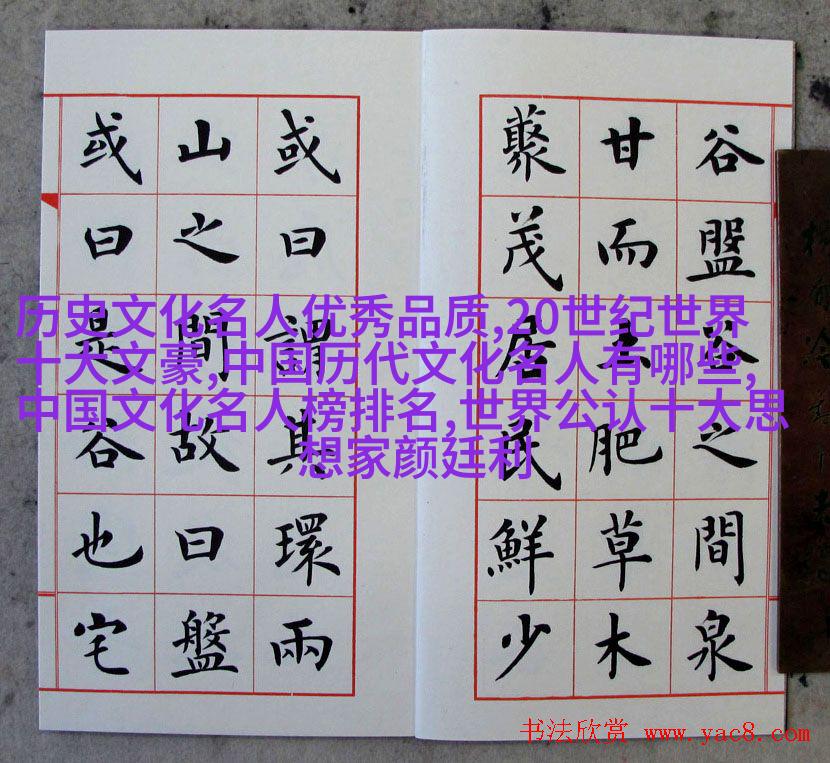 谷盤谷之間泉
甘而土肥草木
藂茂居民鮮少
或曰謂其環兩
山之間故曰盤
或曰是谷也宅
历史文化名人优秀品质,20世纪世界
十大文豪,中国历代文化名人有哪些,
中国文化名人榜排名,世界公认十大思
想家颜廷利
书法欣赏 www.yac8.com